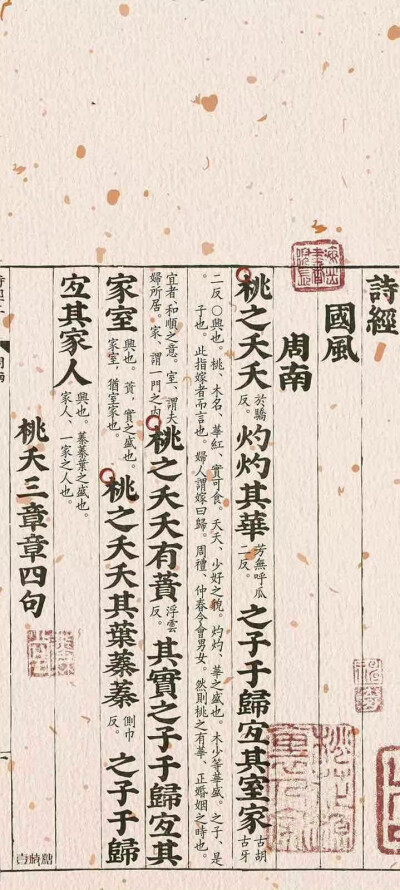 詩經
國風
周南
桃之夭夭於驕反。灼灼其華芳無呼瓜二反。之子于歸宜其室家古胡古牙
二反○興也。桃、木名、華紅、實可食。夭夭、少好之貌。灼灼、華之盛也。木少等華盛。之子、是
子也。此指嫁者而言也。婦人謂嫁曰歸。周禮、仲春令會男女。然則桃之有華、正婚姻之時也。
宜者、和順之意。室、謂夫
婦所居。家、謂一門之内
桃之夭夭有蕡浮雲反。其實之子于歸宜其
家室興也。蕡、實之盛也。家室、猶室家也。
桃之夭夭其葉蓁蓁側巾反。之子于歸
宜其家人興也。蓁蓁葉之盛也。家人、一家之人也。
桃夭三章章四句